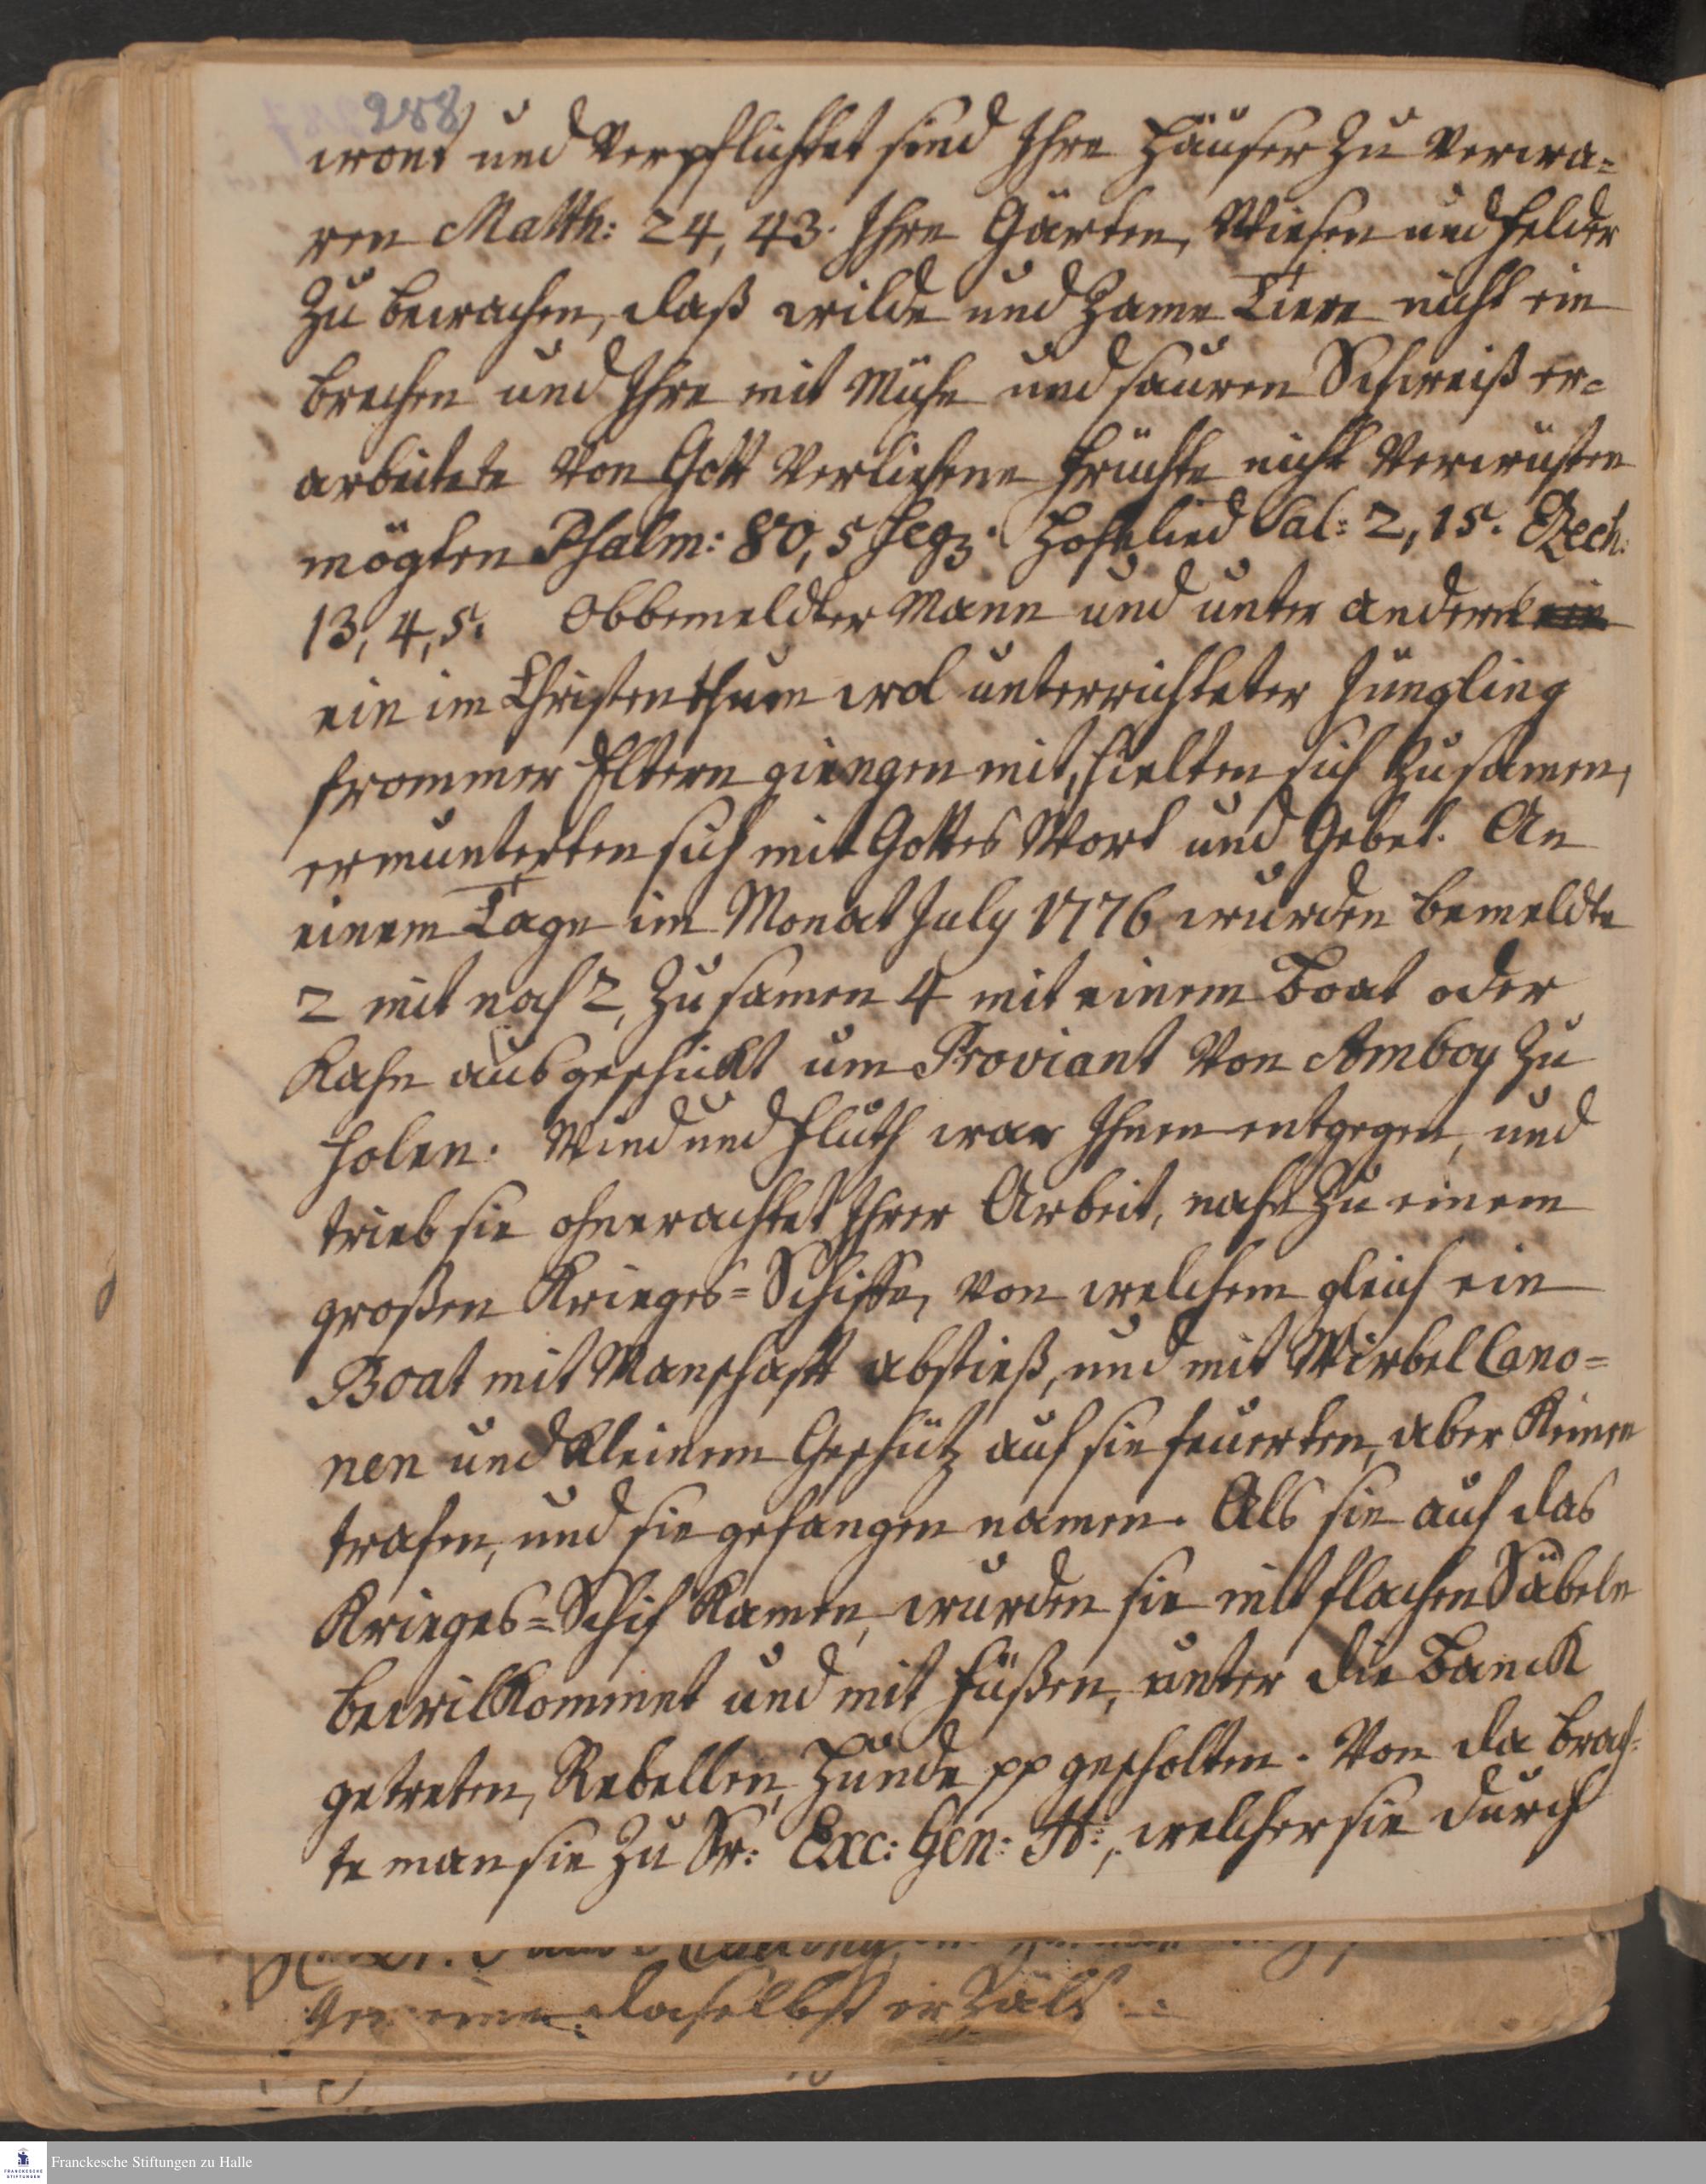 288
wont und verpflichtet sind Ihre Häuser zu verwa=
ren Matth: 24, 43. Ihre Gärten, Wiesen und Felder
zu bewachen, daß wilde und zame Tiere nicht ein
brechen und Ihre mit Mühe und sauren Schweiß er=
arbeitete von Gott verliehene Früchte nicht verwüsten
mögten Psalm: 80, 5 seqq. Hohelied Sal: 2, 15. Ezech:
13, 4, 5. Obbemeldter Mann und unter andern
ein im Christenthum wol unterrichteter Jüngling
frommer Eltern giengen mit, hielten sich zusamen,
ermunterten sich mit Gottes Wort und Gebet. An
einem Tage im Monat July 1776 wurden bemeldte
2 mit noch 2, zusamen 4 mit einem Boat oder
Kahn ausgeschickt um Proviant von Amboy zu
holen. Wind und Fluth war Ihnen entgegen, und
trieb sie ohnerachtet Ihrer Arbeit, nahe zu einem
großen Krieges=Schiffe, von welchem gleich ein
Boat mit Manschafft abstieß, und mit Wirbel Cano=
nen und kleinem Geschütz auf sie feuerten, aber Keinen
trafen, und sie gefangen namen. Als sie auf das
Krieges=Schif kamen, wurden sie mit flachen Säbeln
bewillkommet und mit Füßen, unter die Banck
getreten, Rebellen, Hunde pp gescholten. Von da brach=
te man sie zu Sr: Exc: Gen: H:, welcher sie durch
daselbst erzält
Franckesche Stiftungen zu Halle